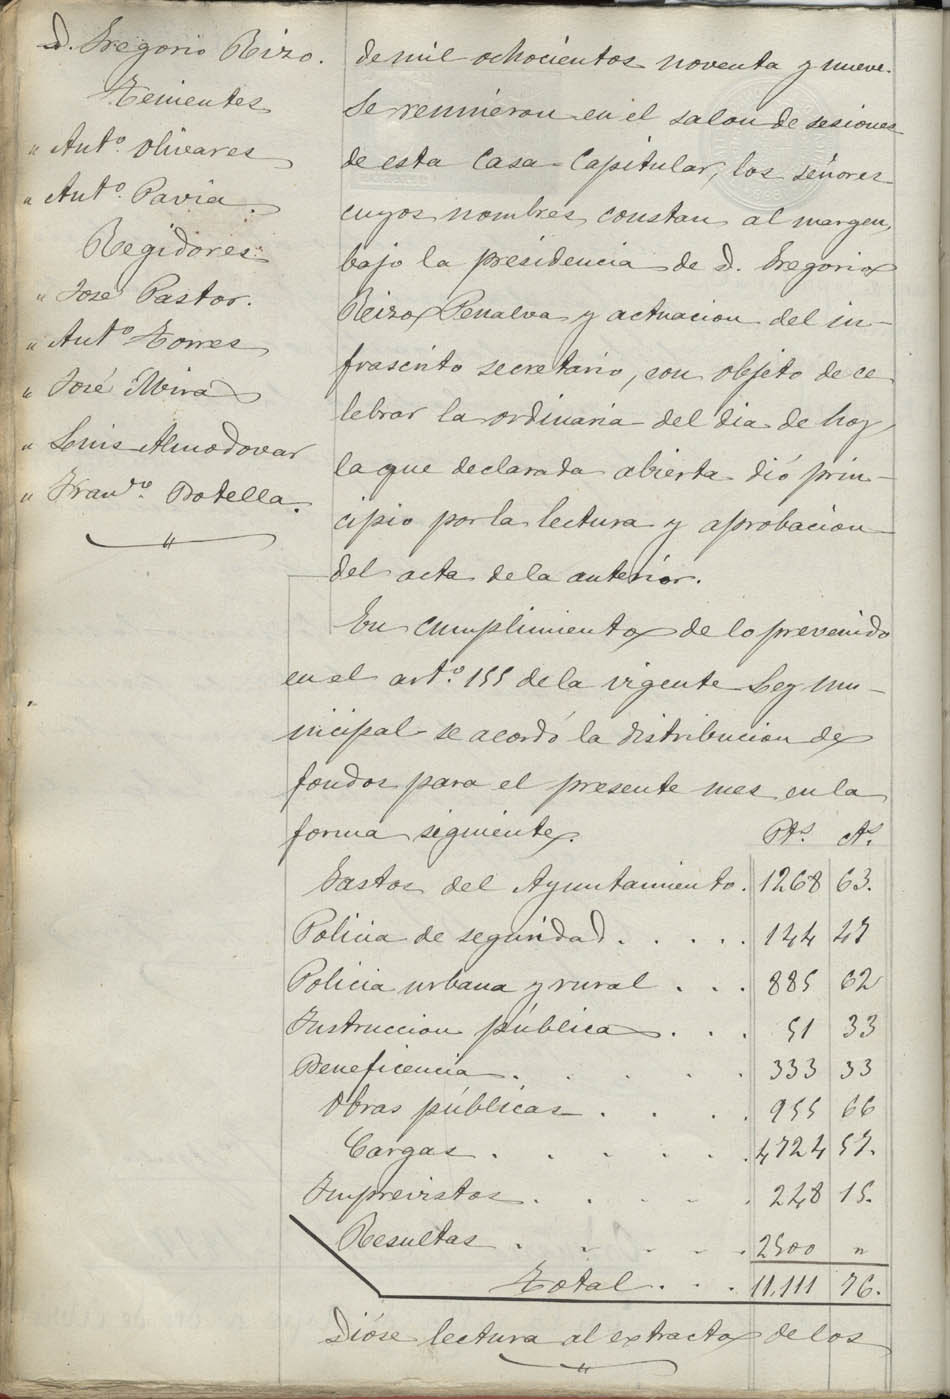 D. Gregorio Rizo.
Tenientes
" Antº. Olivares
" Antº. Pavia.
Regidores
" José Pastor.
" Antº Torres
" José Mira
" Luis Almodovar
" Franco. Botella.
de mil ochocientos noventa y nueve.
Se reunieron en el salon de sesiones
de esta Casa-Capitular, los señores
cuyos nombres constan al margen,
bajo la presidencia de D. Gregorio
Rizo Penalva y actuacion del in-
frascrito secretario, con objeto de ce
lebrar la ordinaria del dia de hoy,
la que declarada abierta dió prin-
cipio por la lectura y aprobacion
del acta de la anterior.
En cumplimiento de lo prevenido
en el artº. 155 de la vigente Ley mu-
nicipal se acordó la distribucion de
fondos para el presente mes en la
forma siguiente. Pts. cts.
Gastos del Ayuntamiento. 1268 63.
Policia de seguridad . . . . . 144 47
Policia urbana y rural . . . 885 62
Instruccion pública . . . 51 33
Beneficencia . . . . . . 333 33
Obras públicas . . . . 955 66
Cargas . . . . . . . 4724 57.
Imprevistos . . . . . . 248 15.
Resultas . . . . . . 2500 "
Total . . . 11.111 76.
Dióse lectura al extracto de los